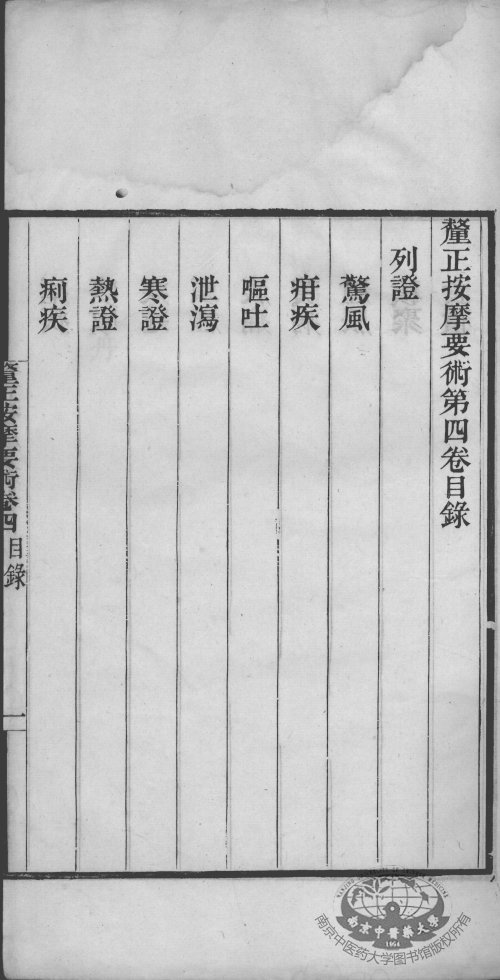 釐正按摩要術第四卷目錄
列證
驚風
疳疾
嘔吐
泄瀉
寒證
熱證
痢疾
釐正按摩要術卷四 目錄
一
南京中醫藥大學
1954
南京中医药大学图书馆版权所有